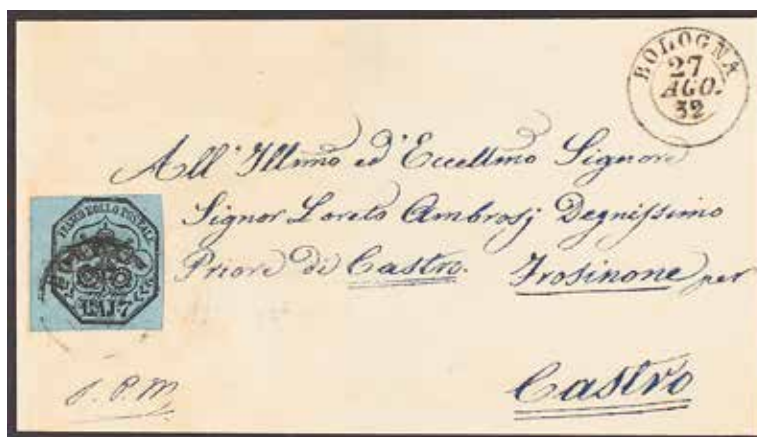 BOLOGNA
27
AGO.
52
All' Illmo ed' Eccellmo Signore
Signor Loreto Ambrosj Degnissimo
Priore di Castro. Frosinone per
Castro
FRANCO BOLLO POSTALE
BAJ 7